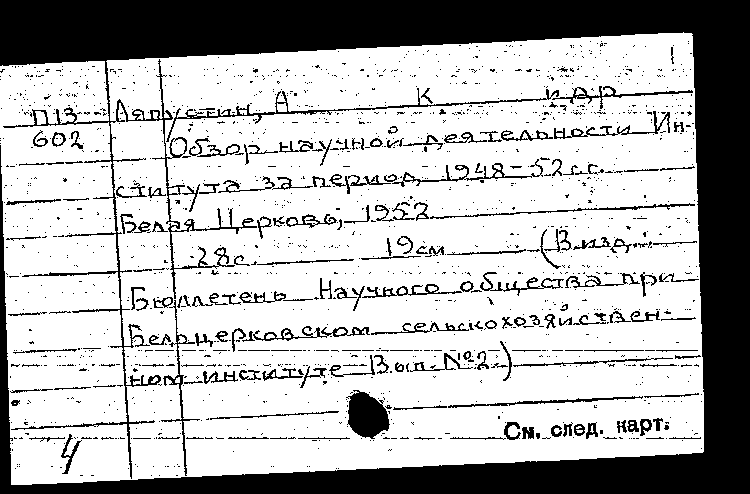 1
П13 Ляпустин, А К и др.
602 Обзор научной деятельности Ин-
ститута за период 1948-52 г.г.
Белая Церковь, 1952
28с. 19см (В изд.:
Бюллетень Научного общества при
Белоцерковском сельскохозяйствен-
ном институте Вып. №2.)
См. след. карт.
4